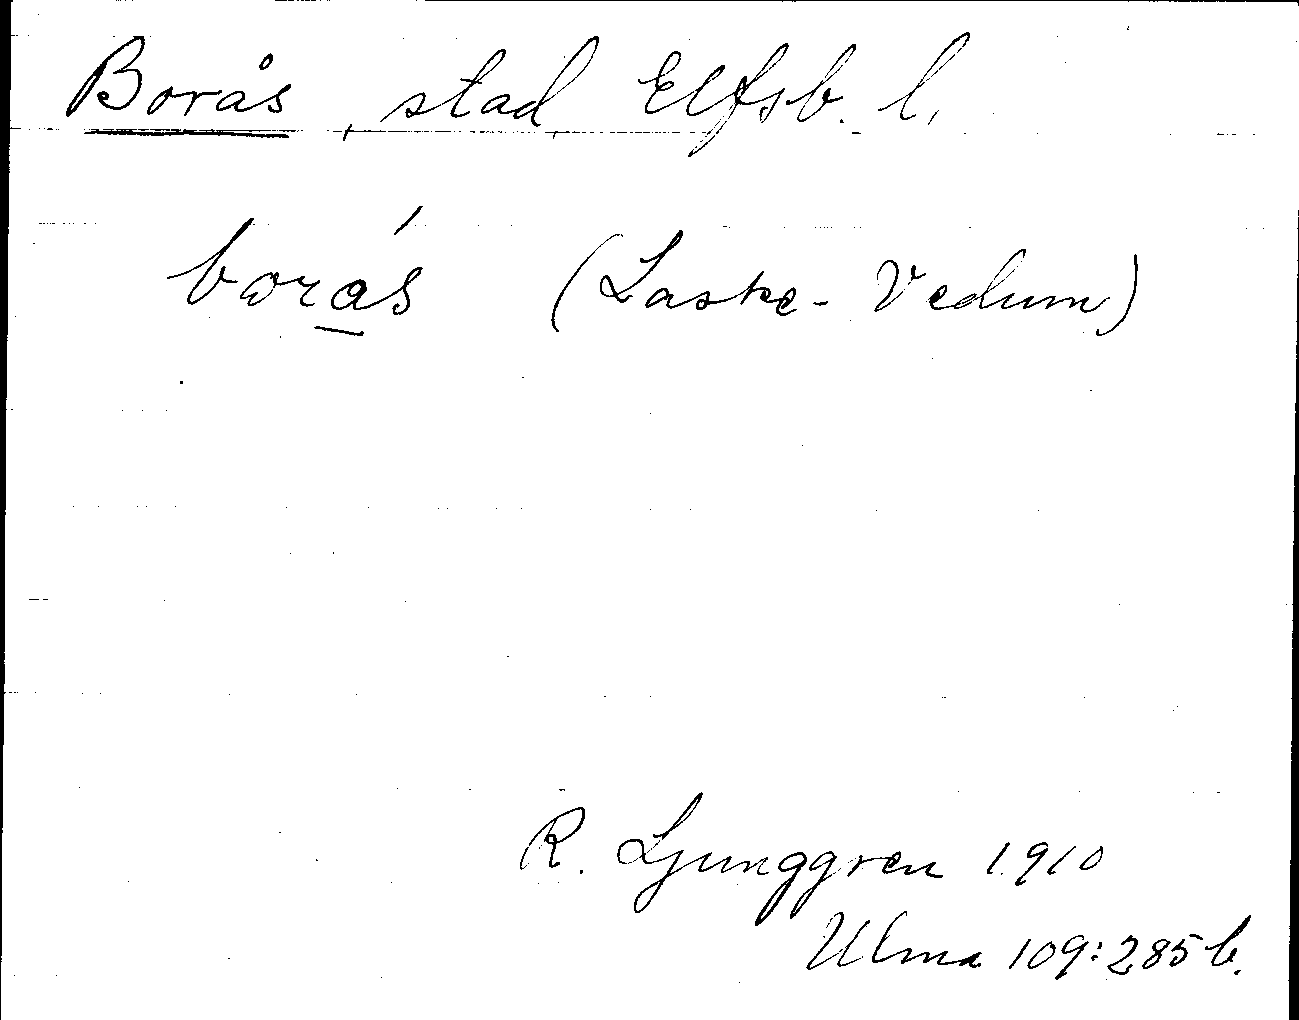 Borås, stad, Elfsb. l.
borás (Laske-Vedum)
R. Ljunggren 1910
Ulma 109:285 b.